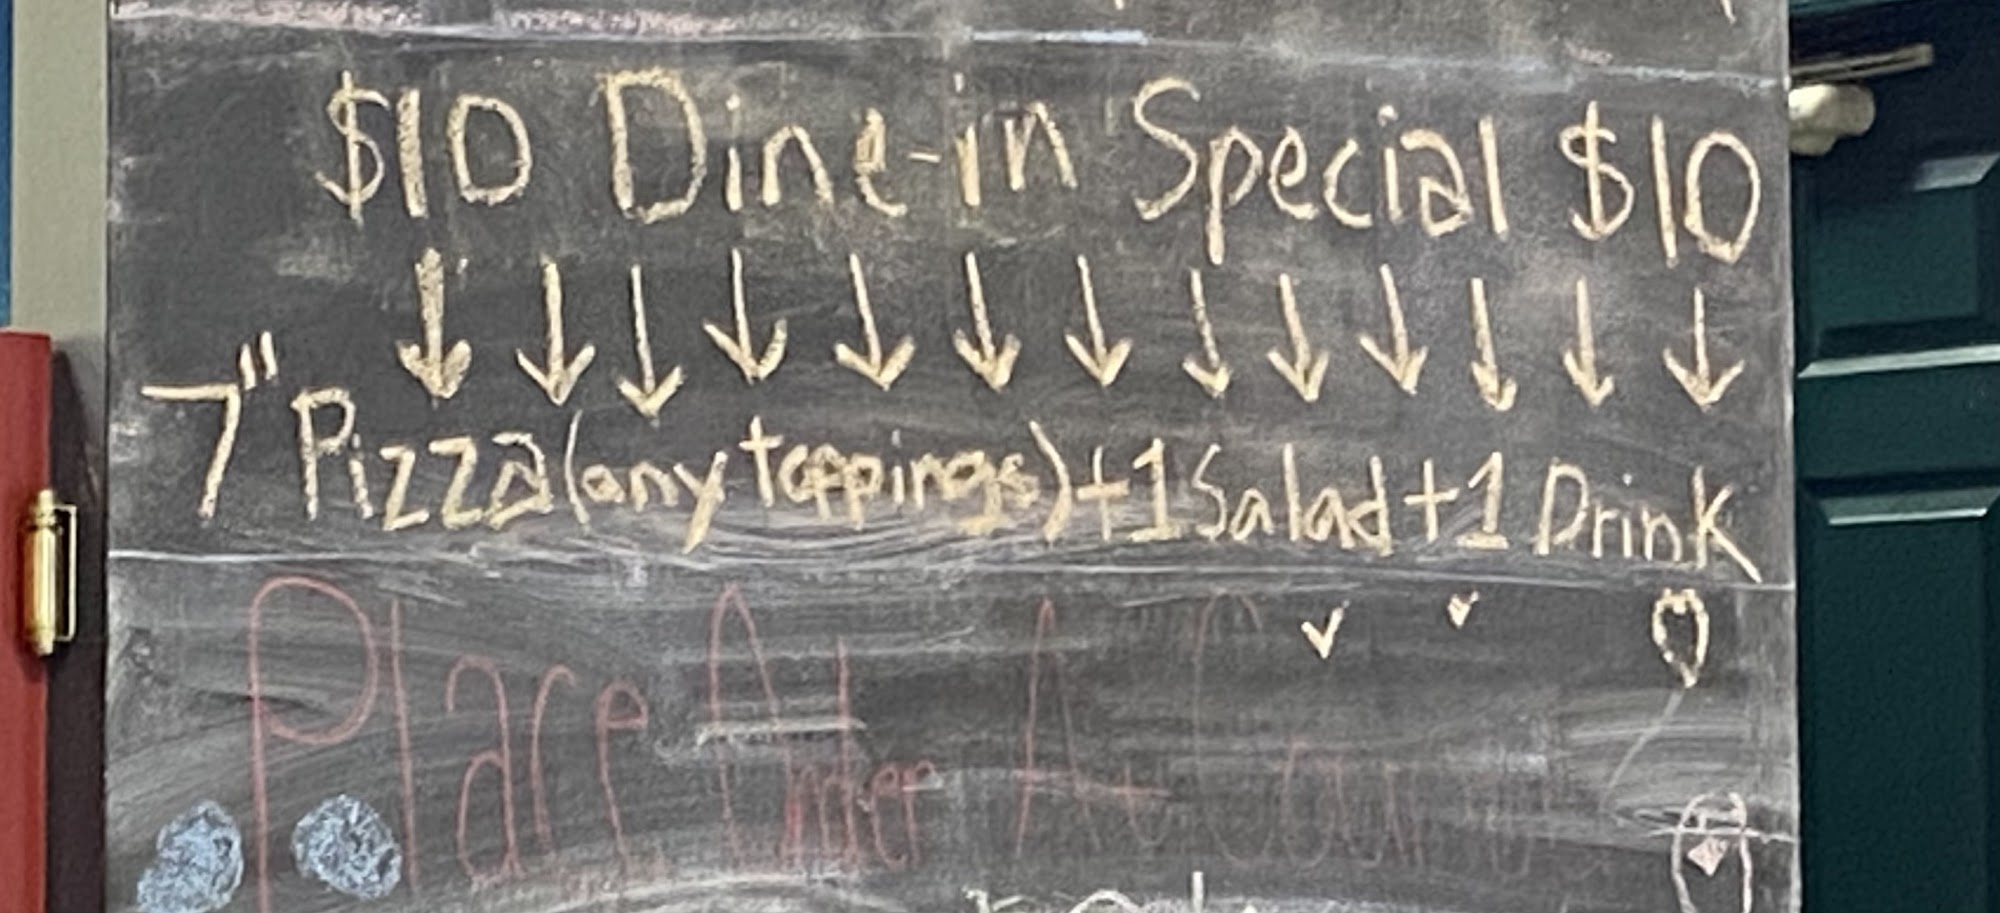 $10 Dine-in Special $10
7" Pizza (any toppings) + 1 Salad + 1 Drink
Place